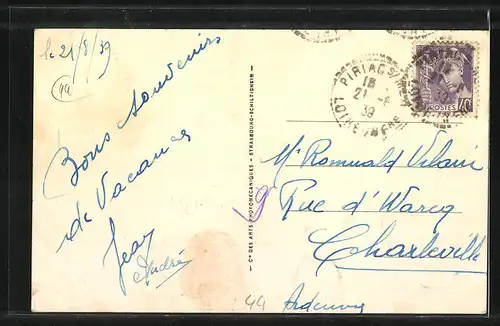 le 21/8/39
(44)
Bons souvenirs
de Vacances
Jean
André
Cie DES ARTS PHOTOMECANIQUES - STRASBOURG-SCHILTIGHEIM -
PIRIAC S
18
21 -8
39
LOIRE INFRE
POSTES 40c
Mr Romuald Vilain
Rue d'Warcq
Charleville
44
Ardennes